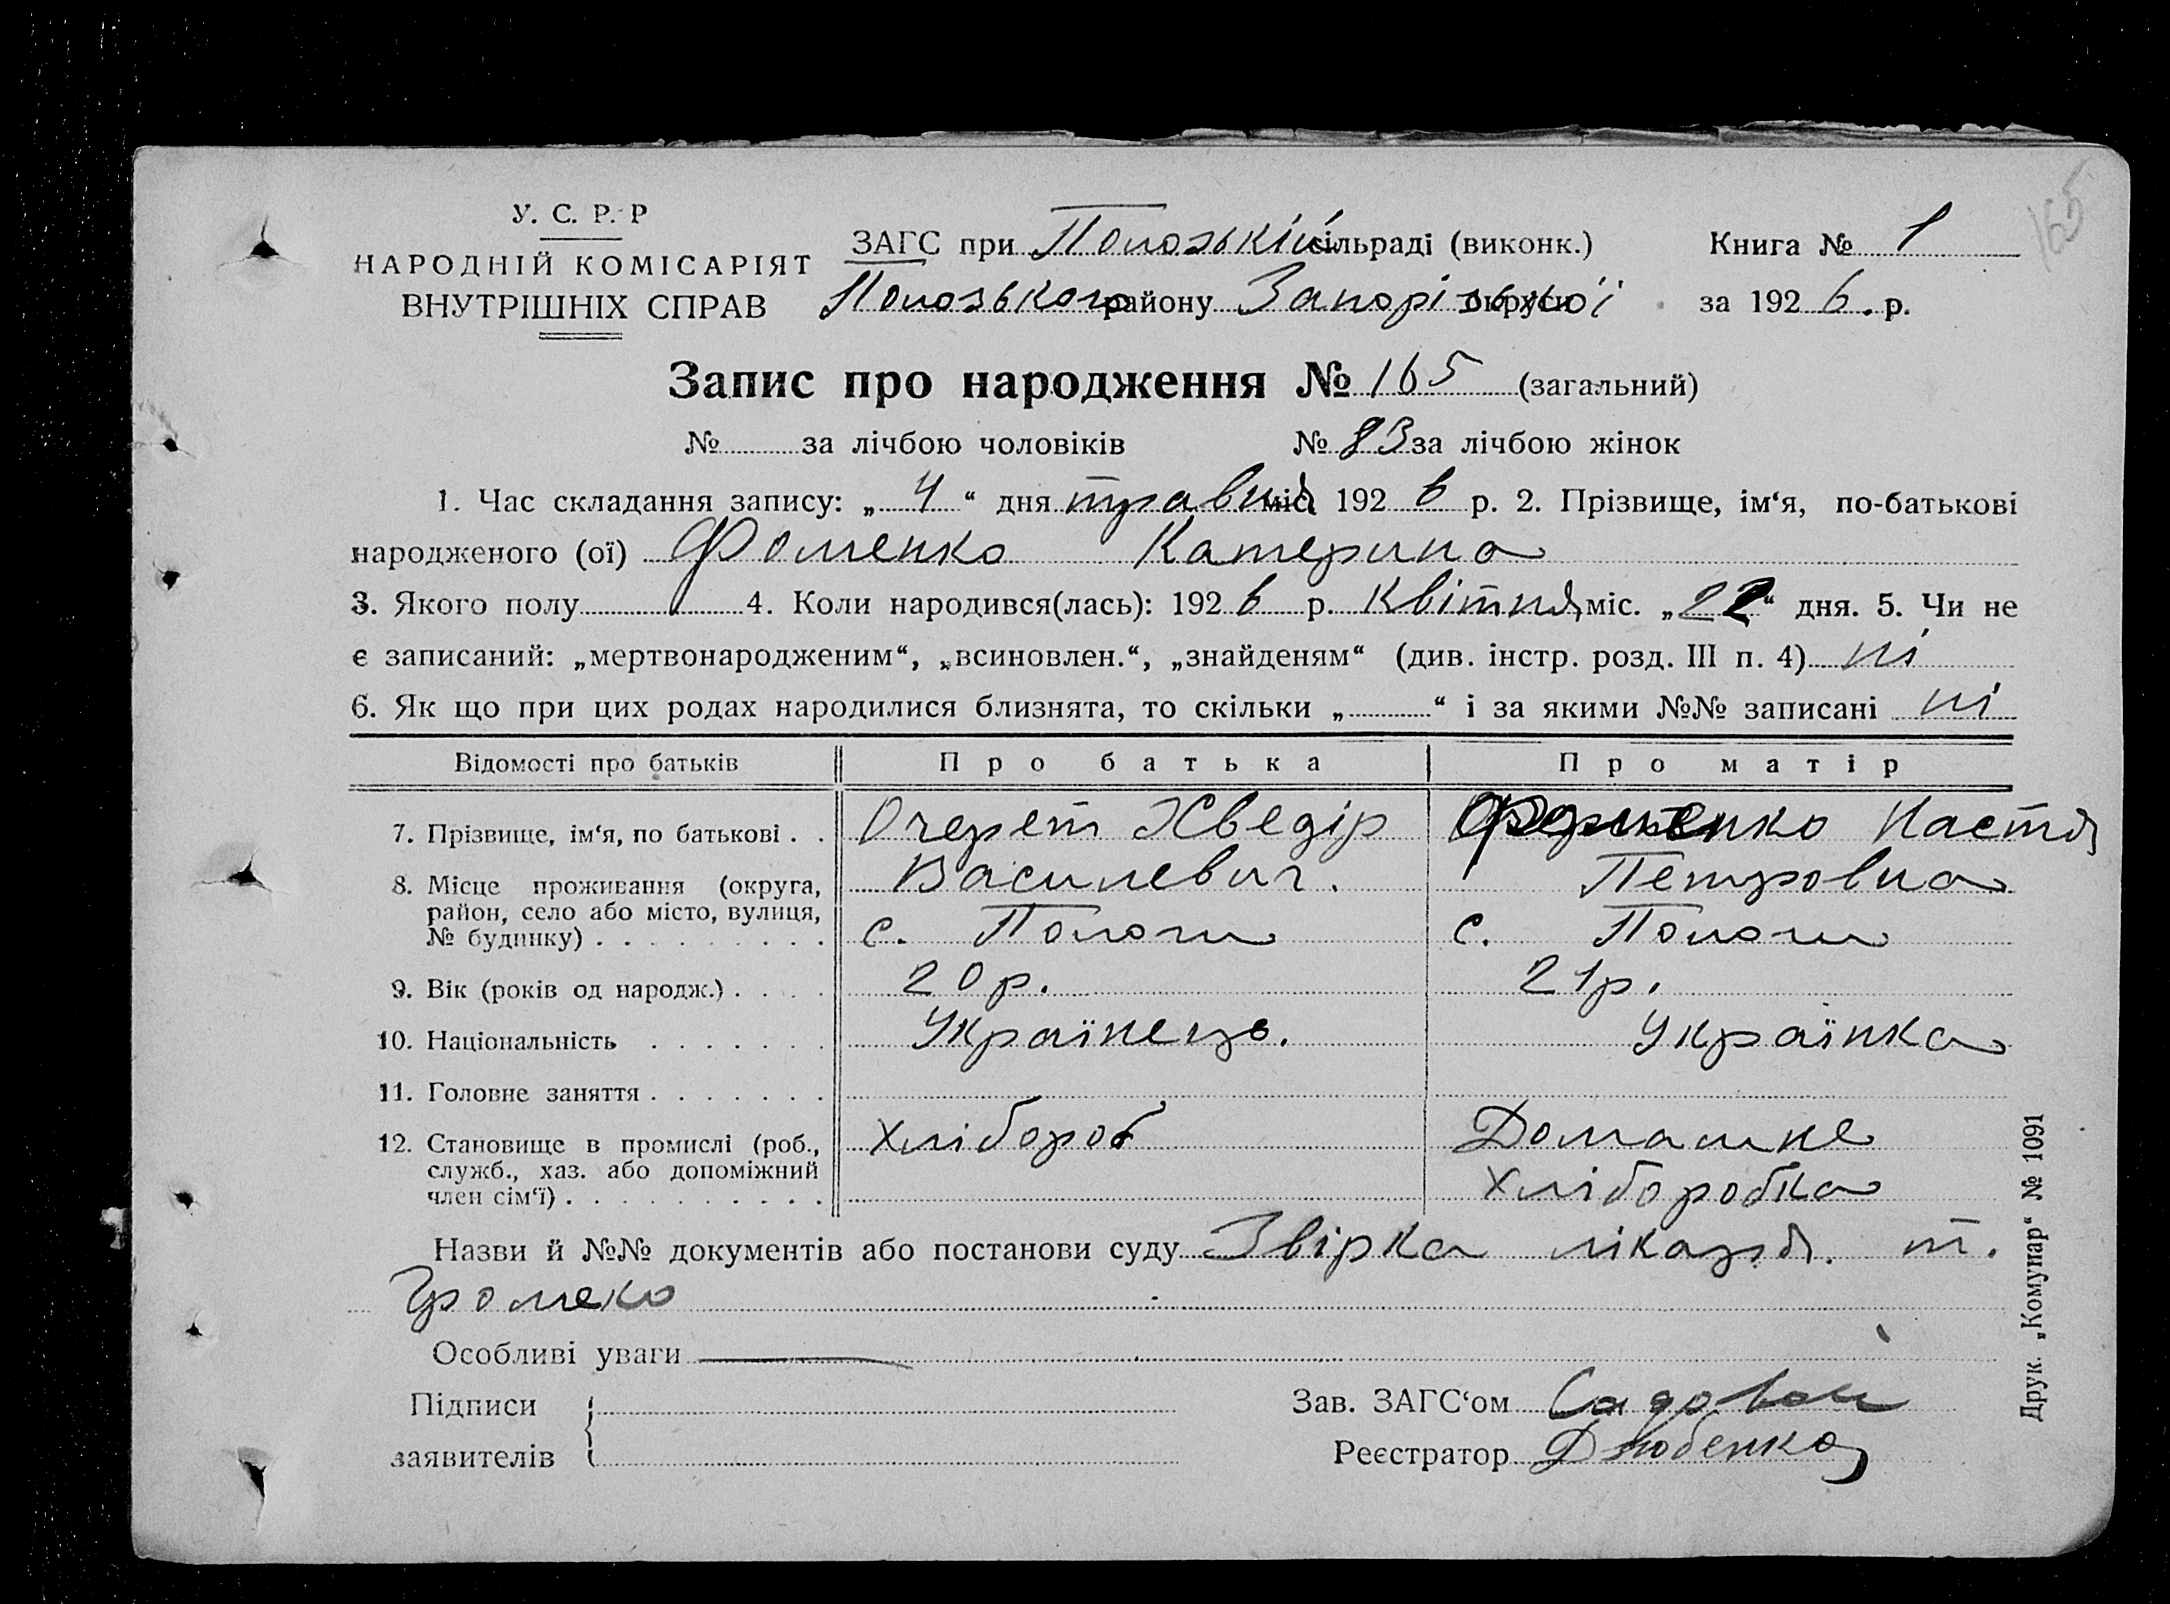 165
У. С. Р. Р
НАРОДНІЙ КОМІСАРІЯТ
ВНУТРІШНІХ СПРАВ
ЗАГС при Пологській сільраді (виконк.) Книга № 1
Пологського району Запорізької округи за 1926 р.
Запис про народження № 165 (загальний)
№ за лічбою чоловіків № 83 за лічбою жінок
1. Час складання запису: „4“ дня травня міс. 1926 р. 2. Прізвище, ім‘я, по-батькові
народженого (ої) Фоменко Катерина
3. Якого полу 4. Коли народився(лась): 1926 р. Квітня міс. „22“ дня. 5. Чи не
є записаний: „мертвонародженим“, „всиновлен.“, „знайденям“ (див. інстр. розд. III п. 4) ні
6. Як що при цих родах народилися близнята, то скільки „ “ і за якими №№ записані ні
Відомості про батьків Про батька Про матір
7. Прізвище, ім‘я, по батькові . . Очерет Хведір Фоменко Настя
Василевич. Петровна
8. Місце проживання (округа,
район, село або місто, вулиця,
№ будинку) . . . . . . . . . с. Пологи с. Пологи
9. Вік (років од народж.) . . . . 20 р. 21 р.
10. Національність . . . . . . . Українець. Українка
11. Головне заняття . . . . . . .
12. Становище в промислі (роб.,
служб., хаз. або допоміжний
член сім‘ї) . . . . . . . . . . Хлібороб Домашнє
Хліборобка
Назви й №№ документів або постанови суду Звірка лікаря. т.
Громеко
Особливі уваги
Підписи
заявителів
Зав. ЗАГС‘ом Садовой
Реєстратор Дзюбенко
Друк. „Комунар“ № 1091